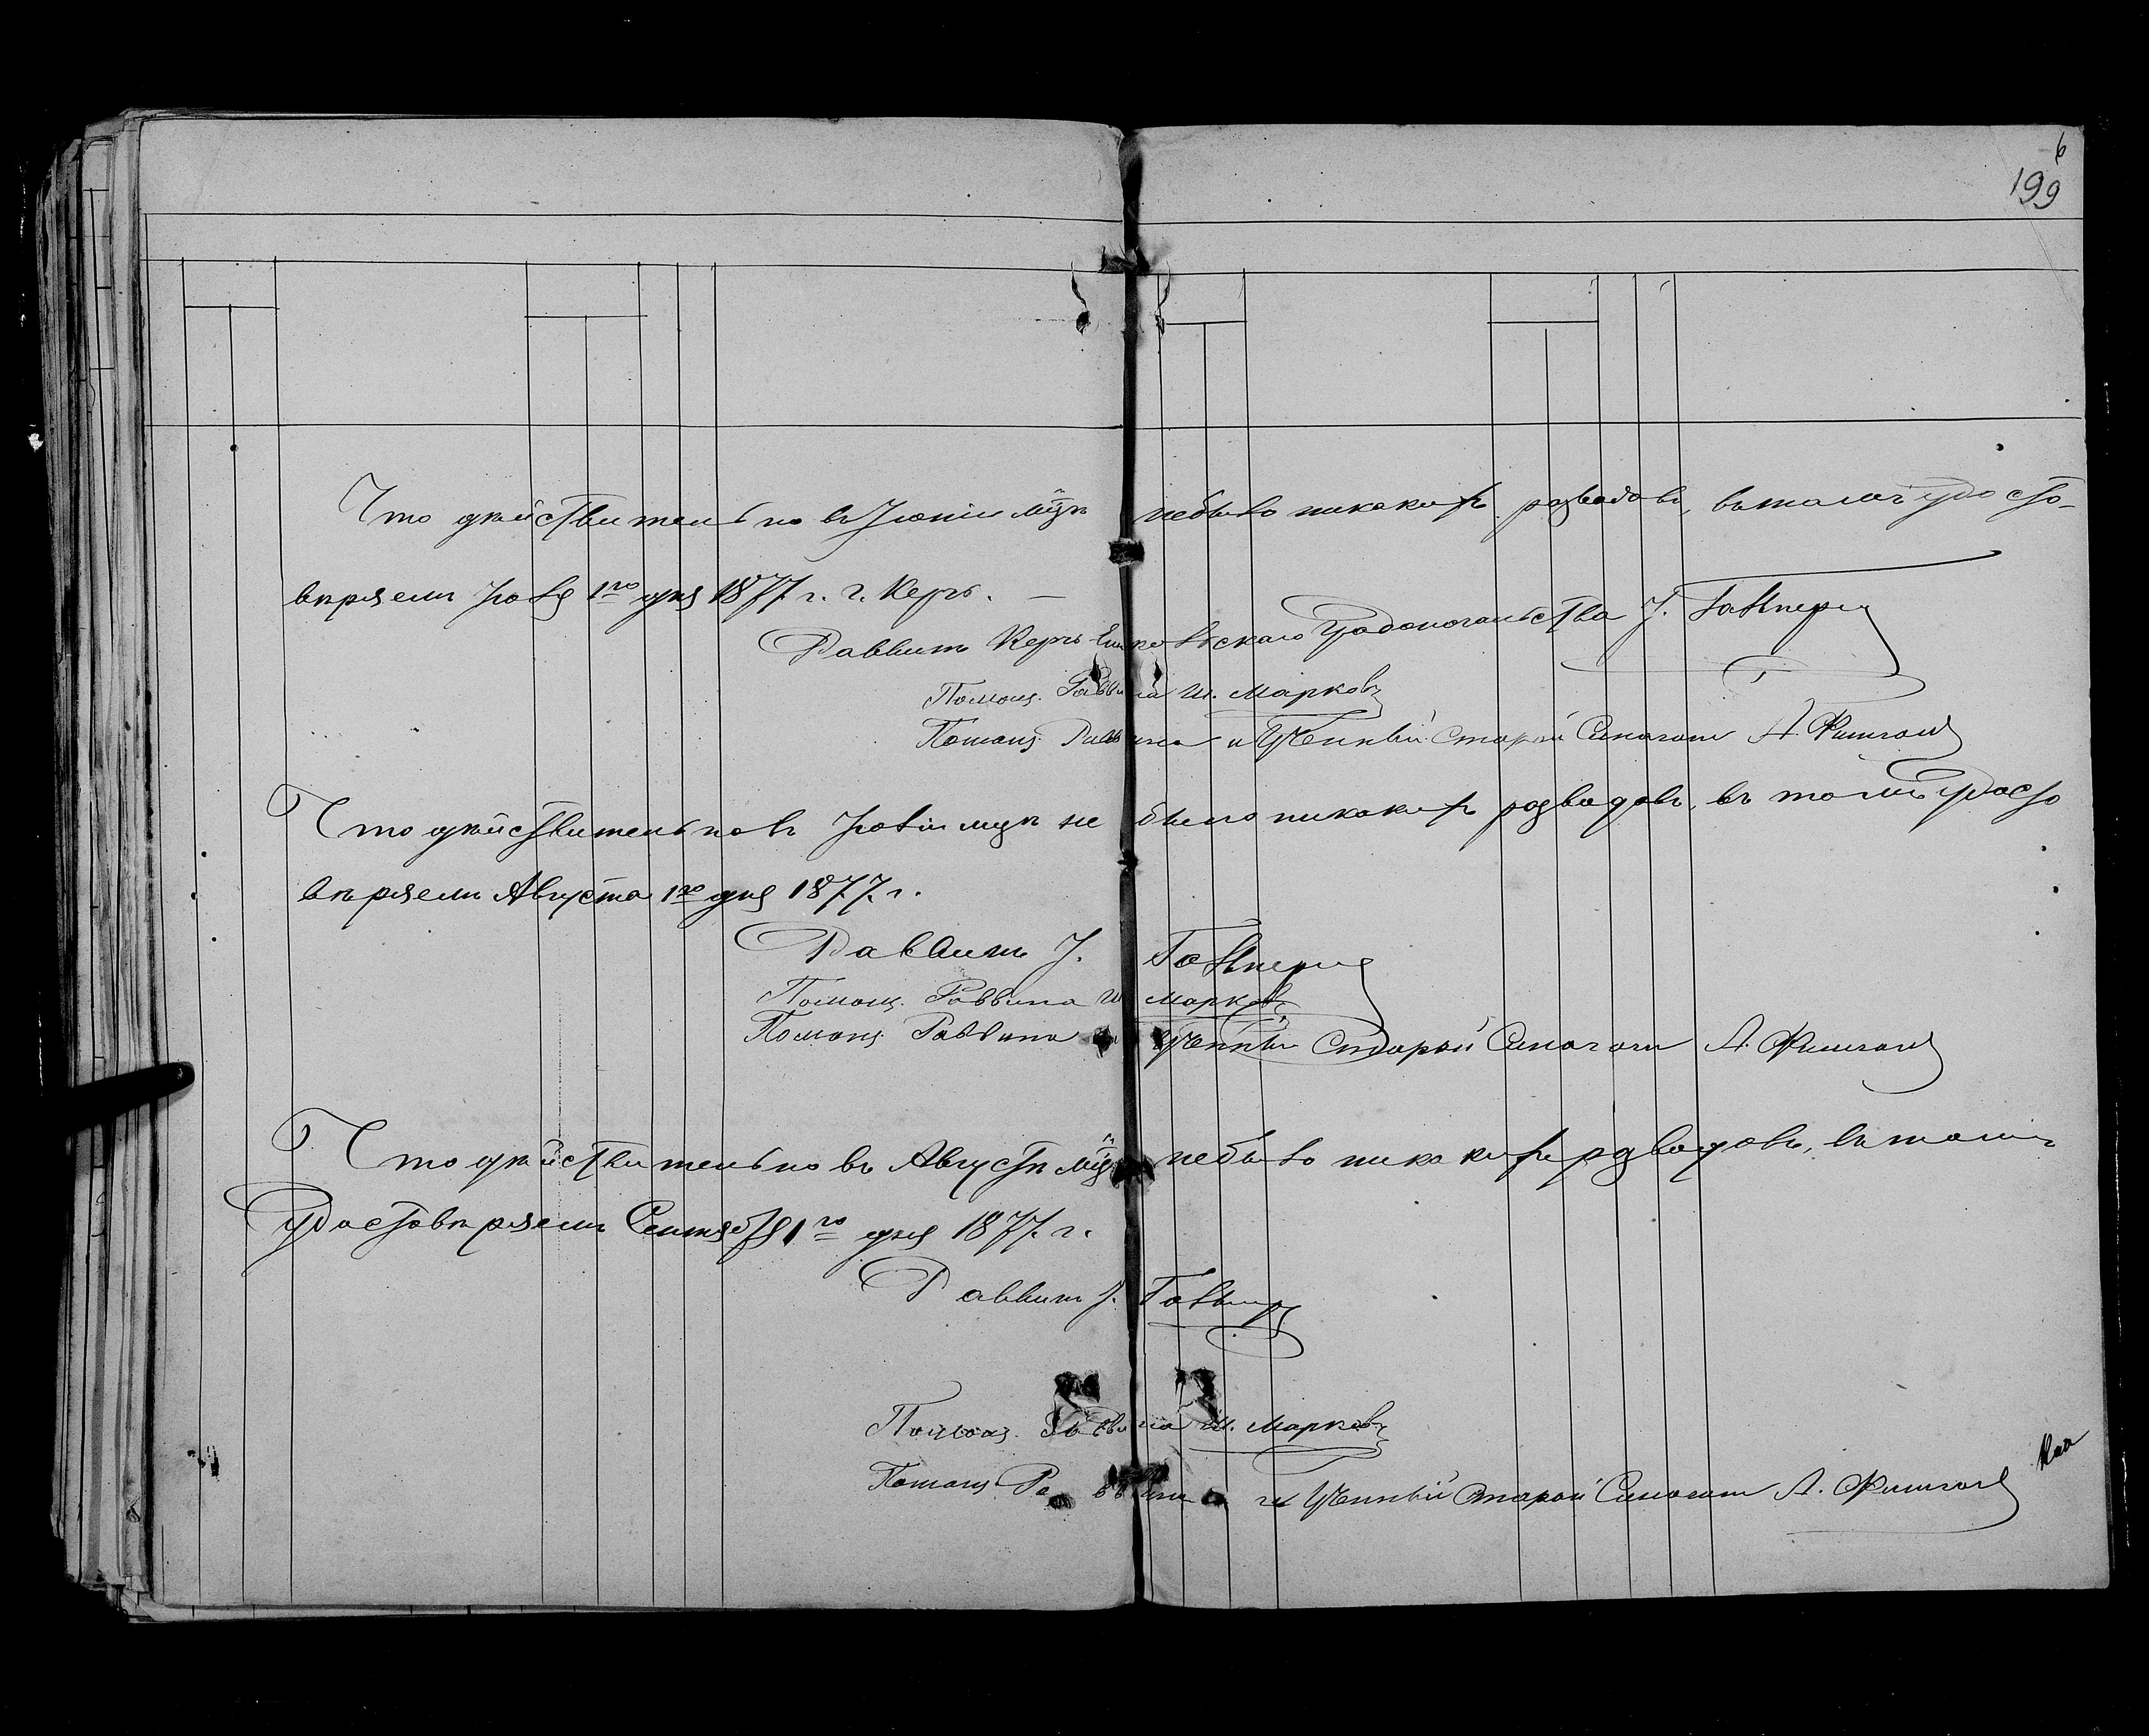 6
199
Что дѣйствительно въ Іюнѣ мцѣ небыло никакихъ разводовъ, въ томъ удосто-
вѣряемъ Іюля 1го дня 1877 г. г. Керчь. —
Раввинъ Керчь-Еникольскаго Градоначальства І. Гальперин
Помощ. Раввина Ш. Марковъ
Помощ. Раввина и Ученый Старой Синагоги А.
Что дѣйствительно въ Іюлѣ мцѣ не было никакихъ разводовъ, въ томъ удосто
вѣряемъ Августа 1го дня 1877 г.
Раввинъ І. Гальперин
Помощ. Раввина Ш Марковъ
Помощ. Раввина и Ученый Старой Синагоги А.
Что дѣйствительно въ Августѣ мцѣ небыло никакихъ разводовъ, въ томъ
Удостовѣряемъ Сентября 1го дня 1877 г.
Раввинъ І. Гальперин
Помощ. Раввина Ш. Марковъ
Помощ Раввина и Ученый Старой Синагоги А.